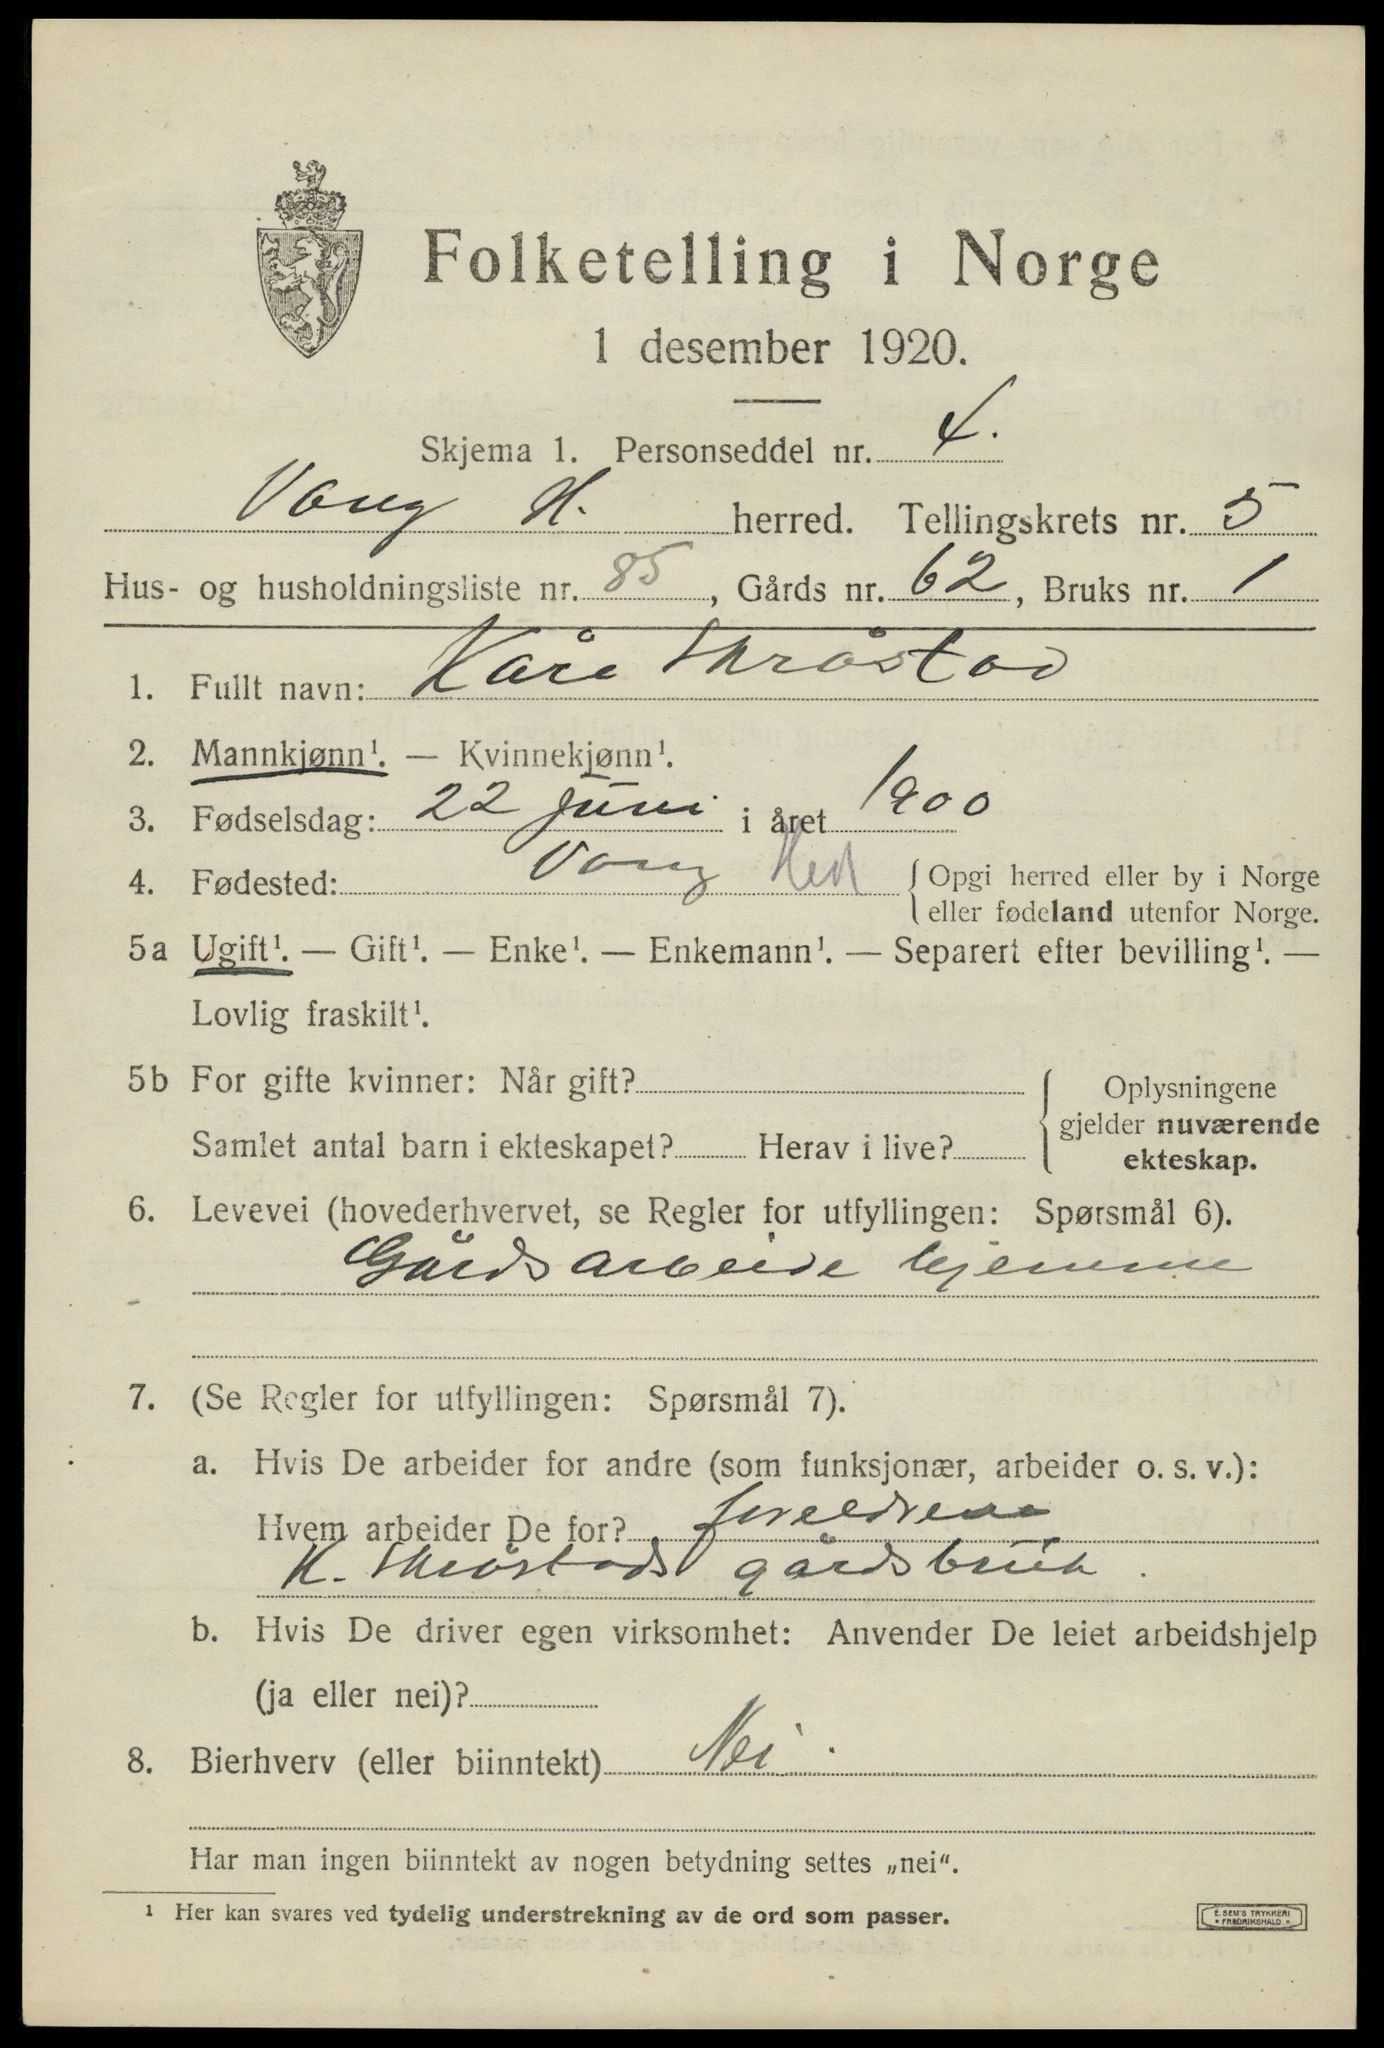 Folketelling i Norge
1 desember 1920.
Skjema 1. Personseddel nr. 4.
Vang H. herred. Tellingskrets nr. 5
Hus- og husholdningsliste nr. 85, Gårds nr. 62, Bruks nr. 1
1. Fullt navn: Kåre Skråstad
2. Mannkjønn¹. — Kvinnekjønn¹.
3. Fødselsdag: 22 juni i året 1900
4. Fødested: Vang Hed { Opgi herred eller by i Norge
eller fødeland utenfor Norge.
5a Ugift¹. — Gift¹. — Enke¹. — Enkemann¹. — Separert efter bevilling¹. —
Lovlig fraskilt¹.
5b For gifte kvinner: Når gift?
Samlet antal barn i ekteskapet? Herav i live?
Oplysningene
gjelder nuværende
ekteskap.
6. Levevei (hovederhvervet, se Regler for utfyllingen: Spørsmål 6).
Gårdsarbeide hjemme
7. (Se Regler for utfyllingen: Spørsmål 7).
a. Hvis De arbeider for andre (som funksjonær, arbeider o. s. v.):
Hvem arbeider De for? foreldrene
K. Skråstads gårdsbruk.
b. Hvis De driver egen virksomhet: Anvender De leiet arbeidshjelp
(ja eller nei)?
8. Bierhverv (eller biinntekt) Nei.
Har man ingen biinntekt av nogen betydning settes „nei“.
¹ Her kan svares ved tydelig understrekning av de ord som passer.
E. SEM'S TRYKKERI
* FREDRIKSHALD *